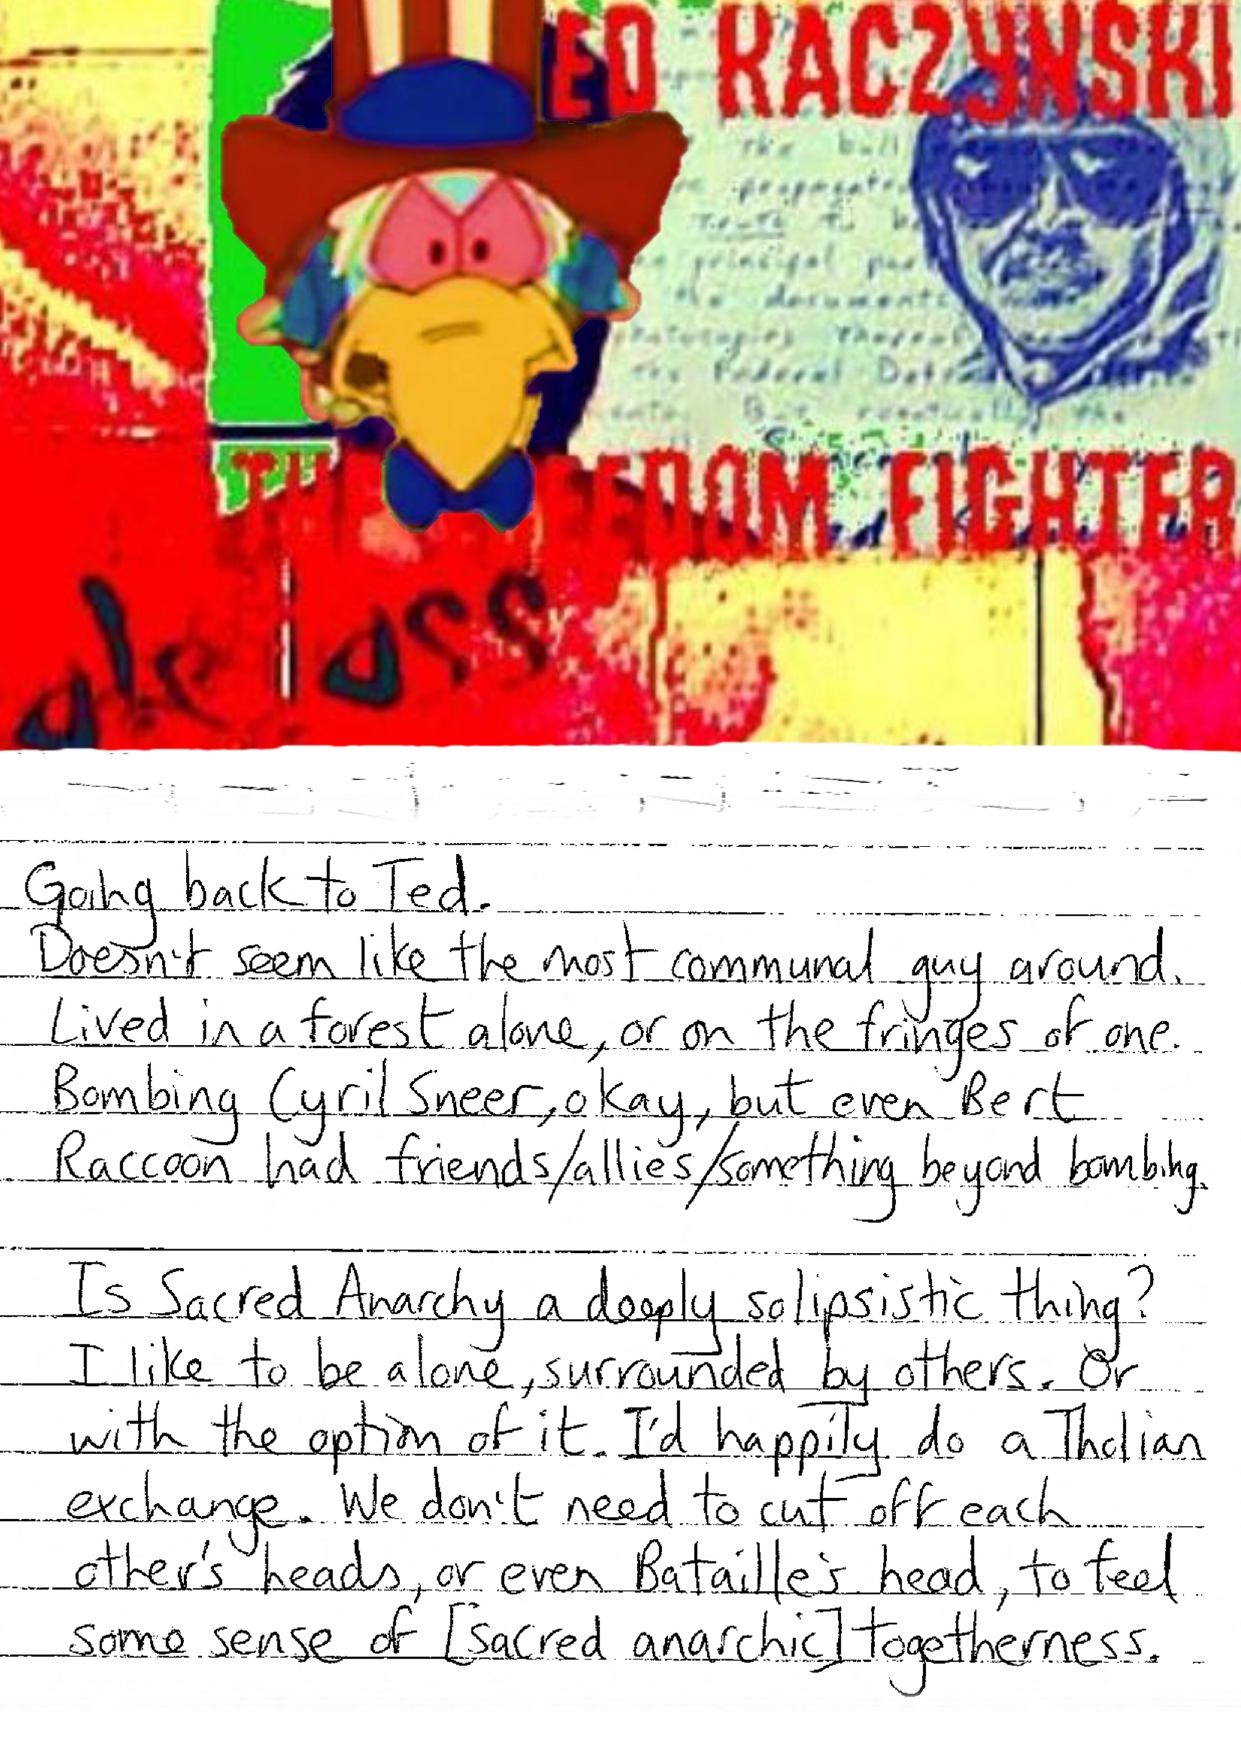 ED KACZYNSKI
The bull
propagate
Truth to b
principal par
the documents
photocopies thereof
the Federal Def
But
the
THE FREEDOM FIGHTER
ass
Going back to Ted.
Doesn't seem like the most communal guy around.
Lived in a forest alone, or on the fringes of one.
Bombing Cyril Sneer, okay, but even Bert
Raccoon had friends/allies/something beyond bombing.
Is Sacred Anarchy a deeply solipsistic thing?
I like to be alone, surrounded by others. Or
with the option of it. I'd happily do a Tholian
exchange. We don't need to cut off each
other's heads, or even Bataille's head, to feel
some sense of [sacred anarchic] togetherness.